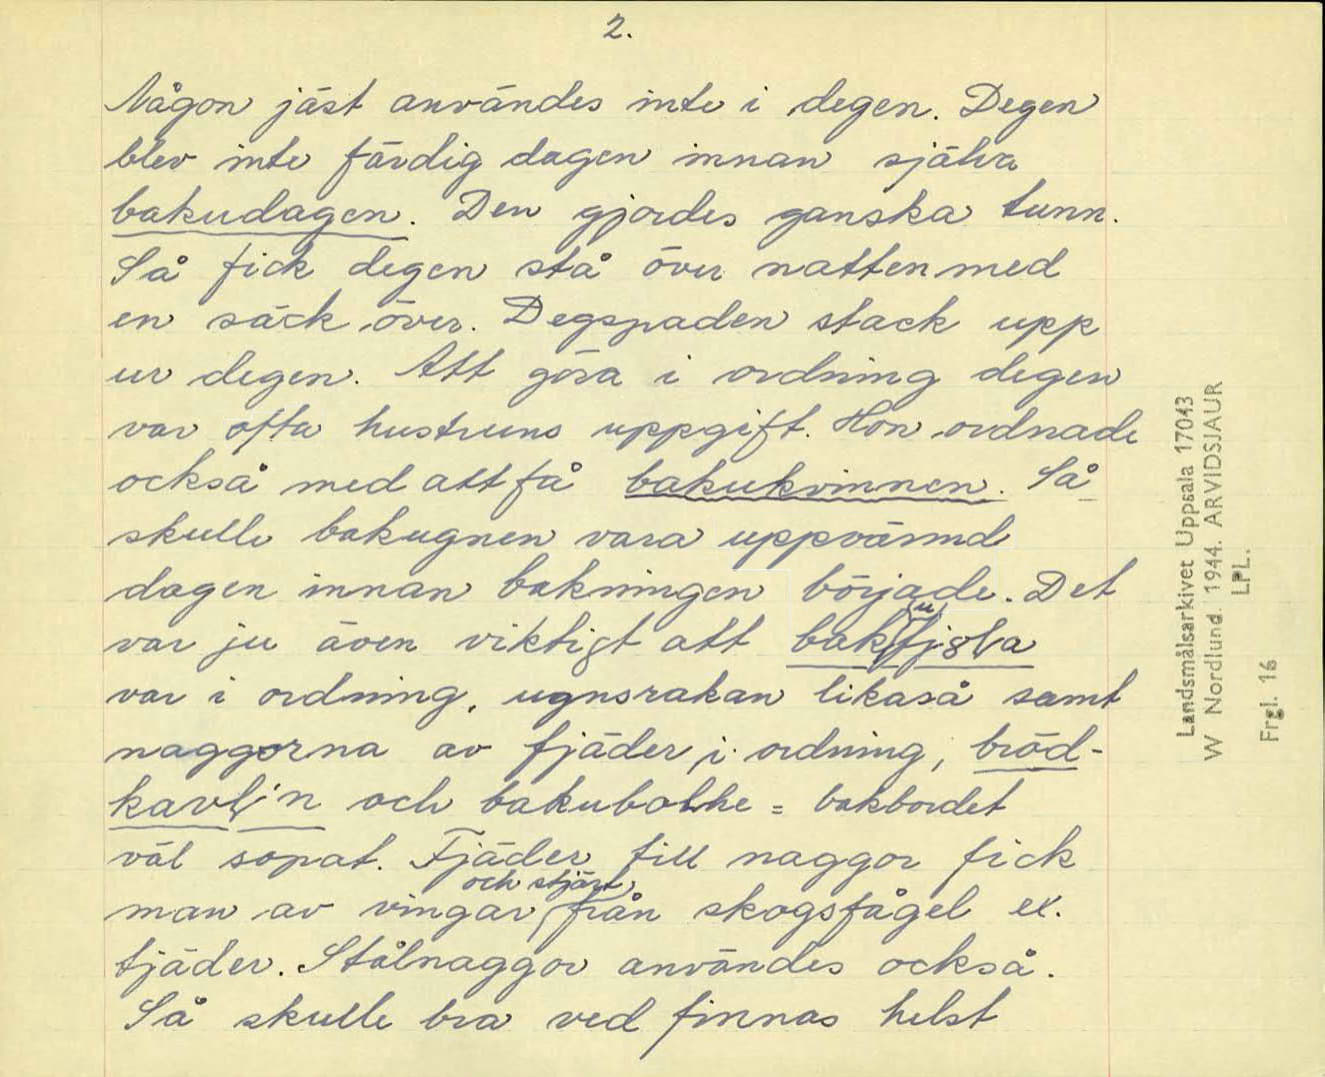 2.
Någon jäst användes inte i degen. Degen
blev inte färdig dagen innan själva
bakudagen. Den gjordes ganska tunn.
Så fick degen stå över natten med
en säck över. Degspaden stack upp
ur degen. Att göra i ordning degen
var ofta hustruns uppgift. Hon ordnade
också med att få bakukvinnen. Så
skulle bakugnen vara uppvärmd
dagen innan bakningen började. Det
var ju även viktigt att bak(u)fjøla
var i ordning, ugnsrakan likaså samt
naggorna av fjäder i ordning, bröd-
kavl'n och bakubolke = bakbordet
väl sopat. Fjäder till naggor fick
man av vingar och stjärt från skogsfågel ex.
tjäder. Stålnaggor användes också.
Så skulle bra ved finnas helst
Landsmålsarkivet Uppsala 17043
W Nordlund. 1944. ARVIDSJAUR
LPL.
Frgl. 16